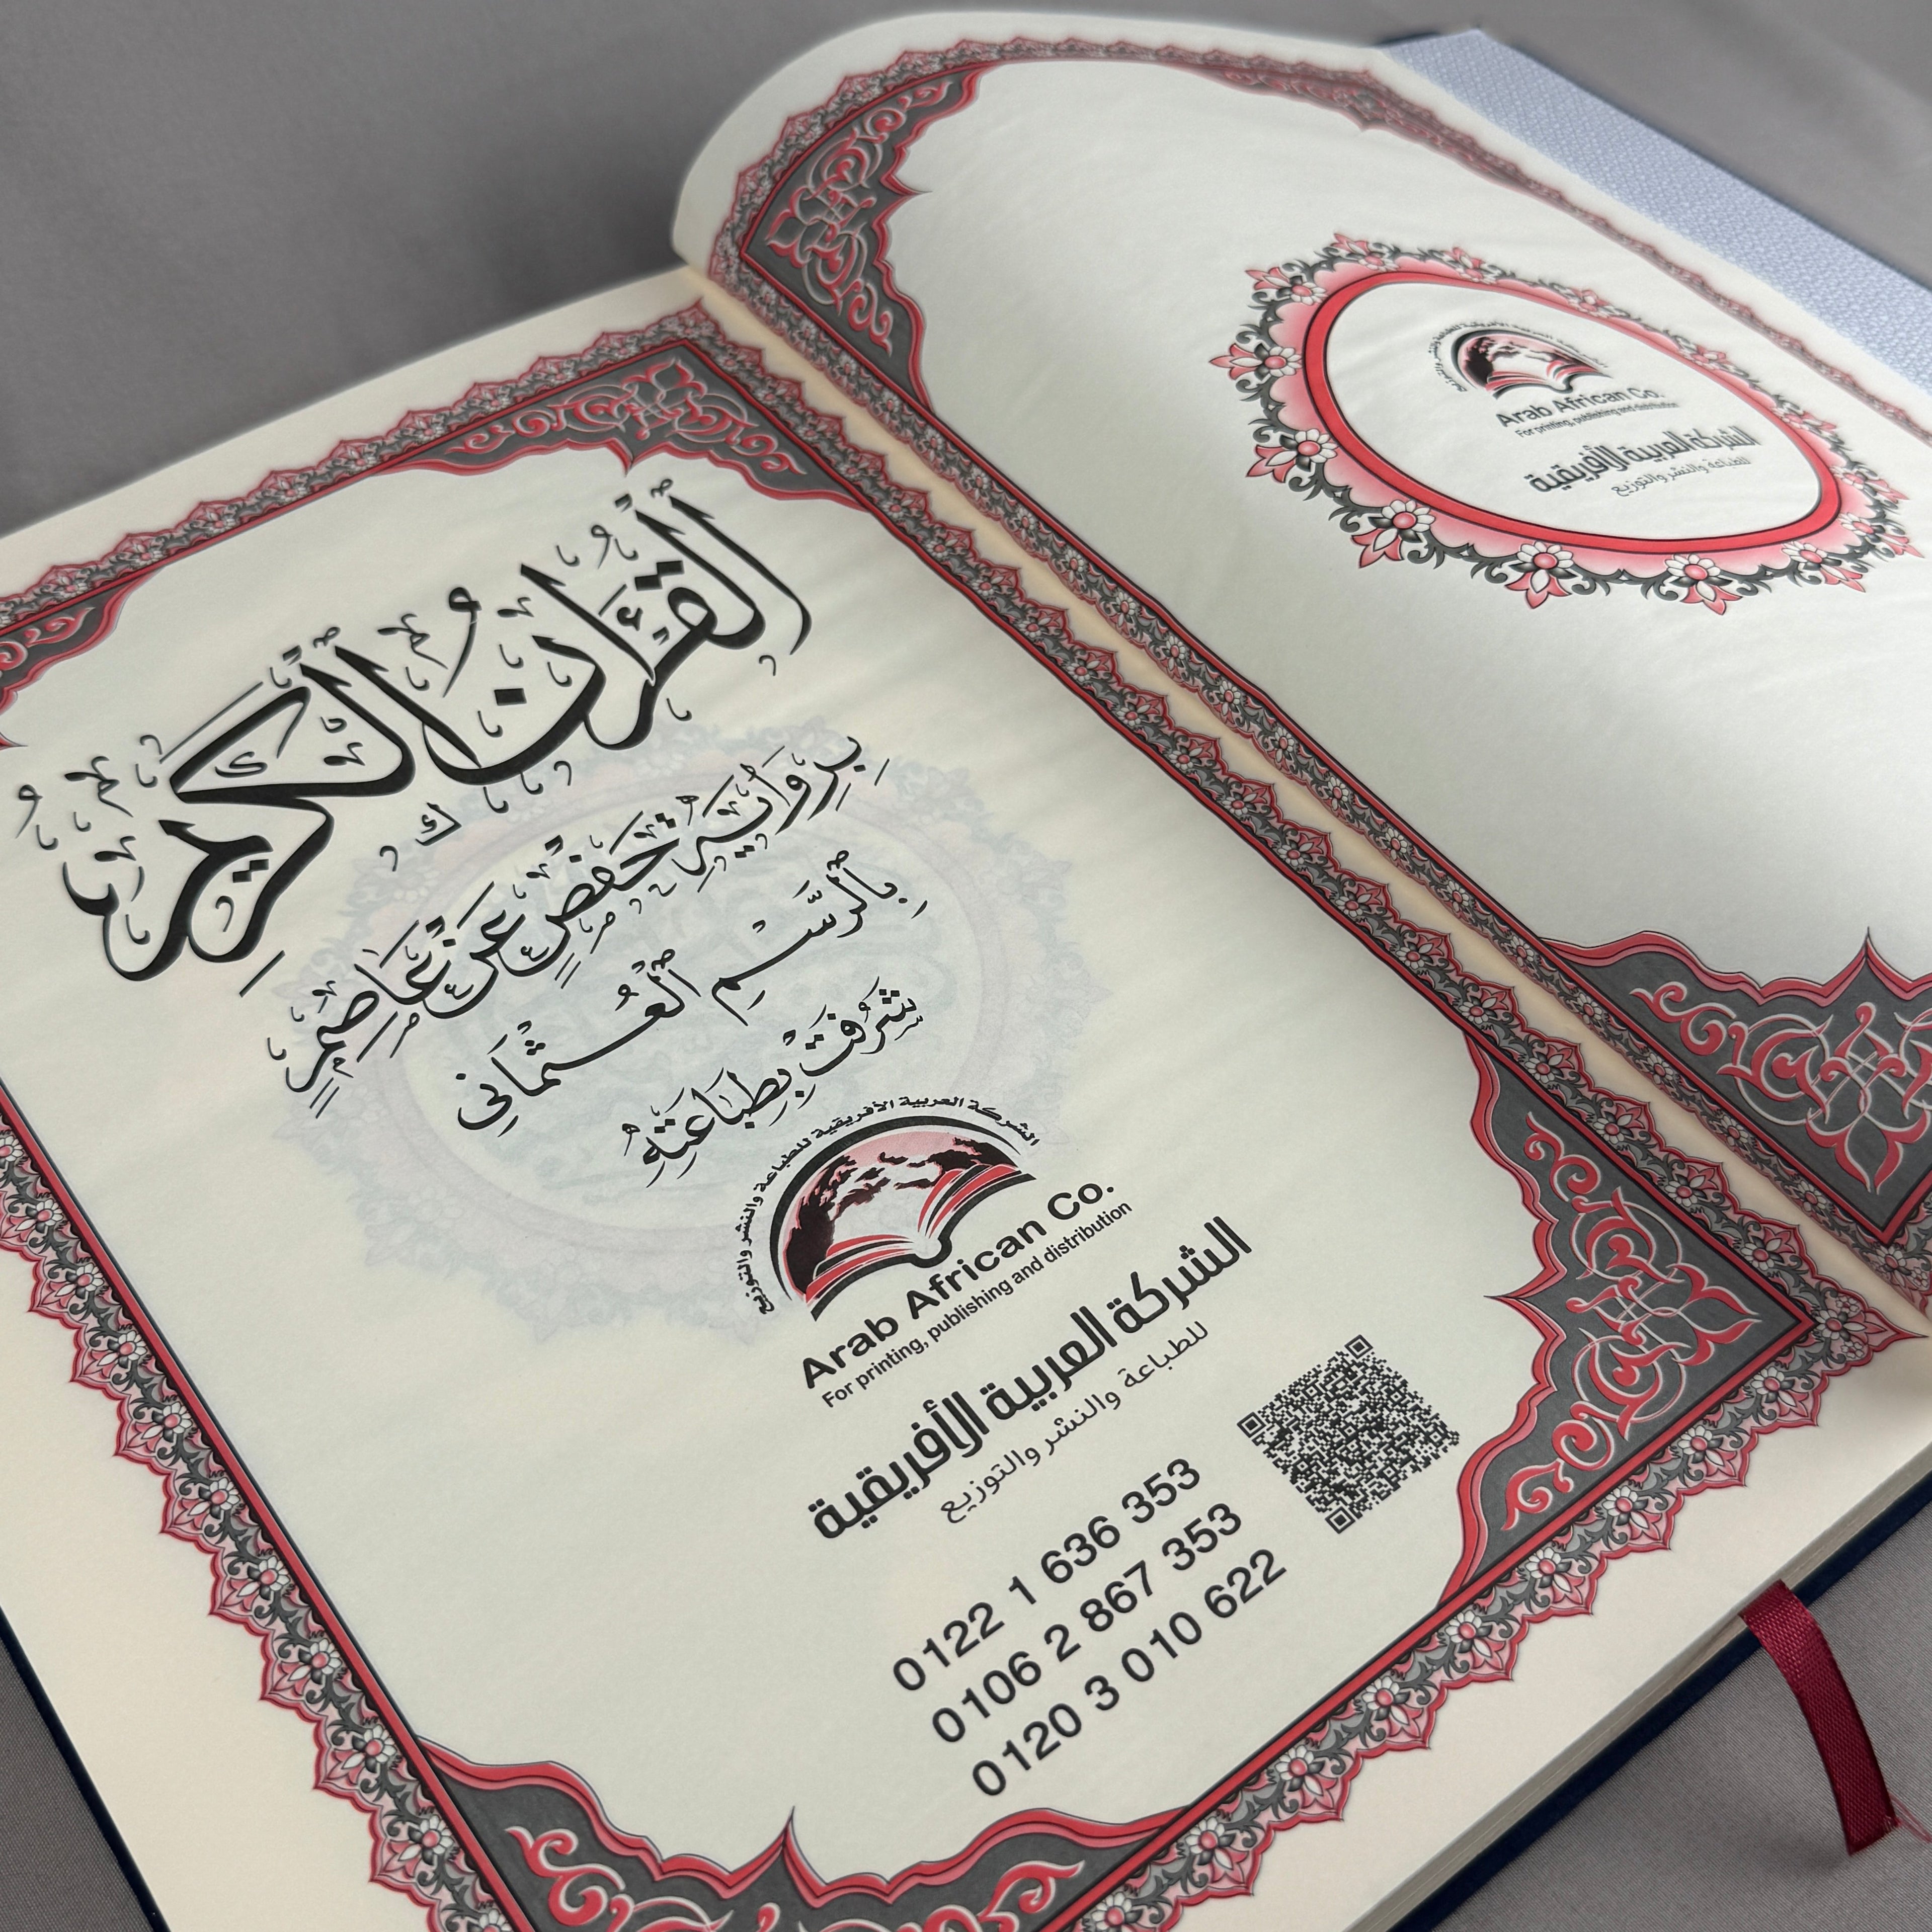 القرءان الكريم
بِرِوَايَةِ حَفْصٍ عَنْ عَاصِمٍ
بِٱلرَّسْمِ ٱلْعُثْمَانِي
شَرُفَتْ بِطِبَاعَتِهِ
الشركة العربية الأفريقية للطباعة والنشر والتوزيع
Arab African Co.
For printing, publishing and distribution
الشركة العربية الأفريقية
للطباعة والنشر والتوزيع
0122 1 636 353
0106 2 867 353
0120 3 010 622
Arab African Co.
For printing, publishing and distribution
الشركة العربية الأفريقية
للطباعة والنشر والتوزيع